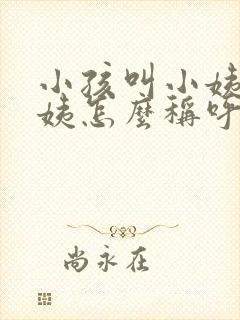 小孩叫小姨
姨怎麼稱呼
尚永在